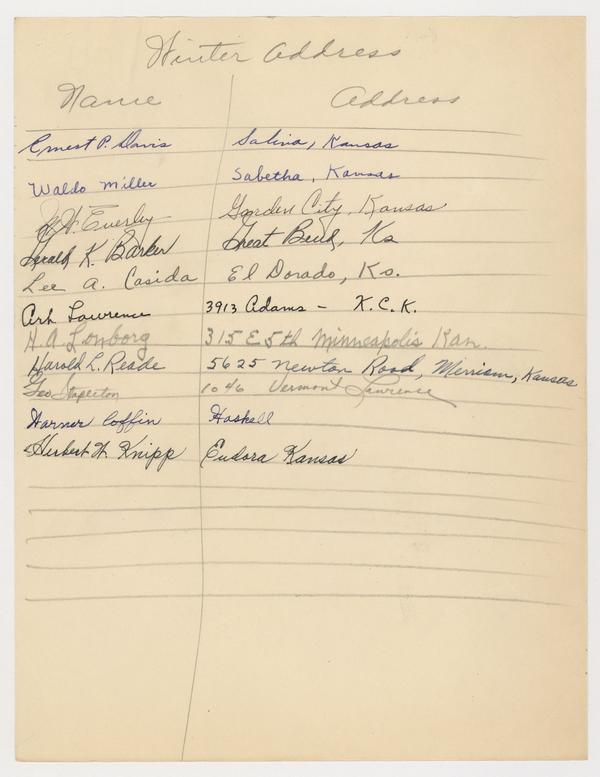 Winter Address
Name Address
Ernest P. Davis Salina, Kansas
Waldo Miller Sabetha, Kansas
J. H. Everly Garden City, Kansas
Gerald K. Barker Great Bend, Ks
Lee A. Casida El Dorado, Ks.
Art Lawrence 3913 Adams - K.C.K.
H. A. Lonborg 315 E 5th Minneapolis Kan.
Harold L. Reade 5625 Newton Road, Merriam, Kansas
Geo. Stapleton 1046 Vermont Lawrence
Warner Coffin Haskell
Herbert W. Knipp Eudora Kansas